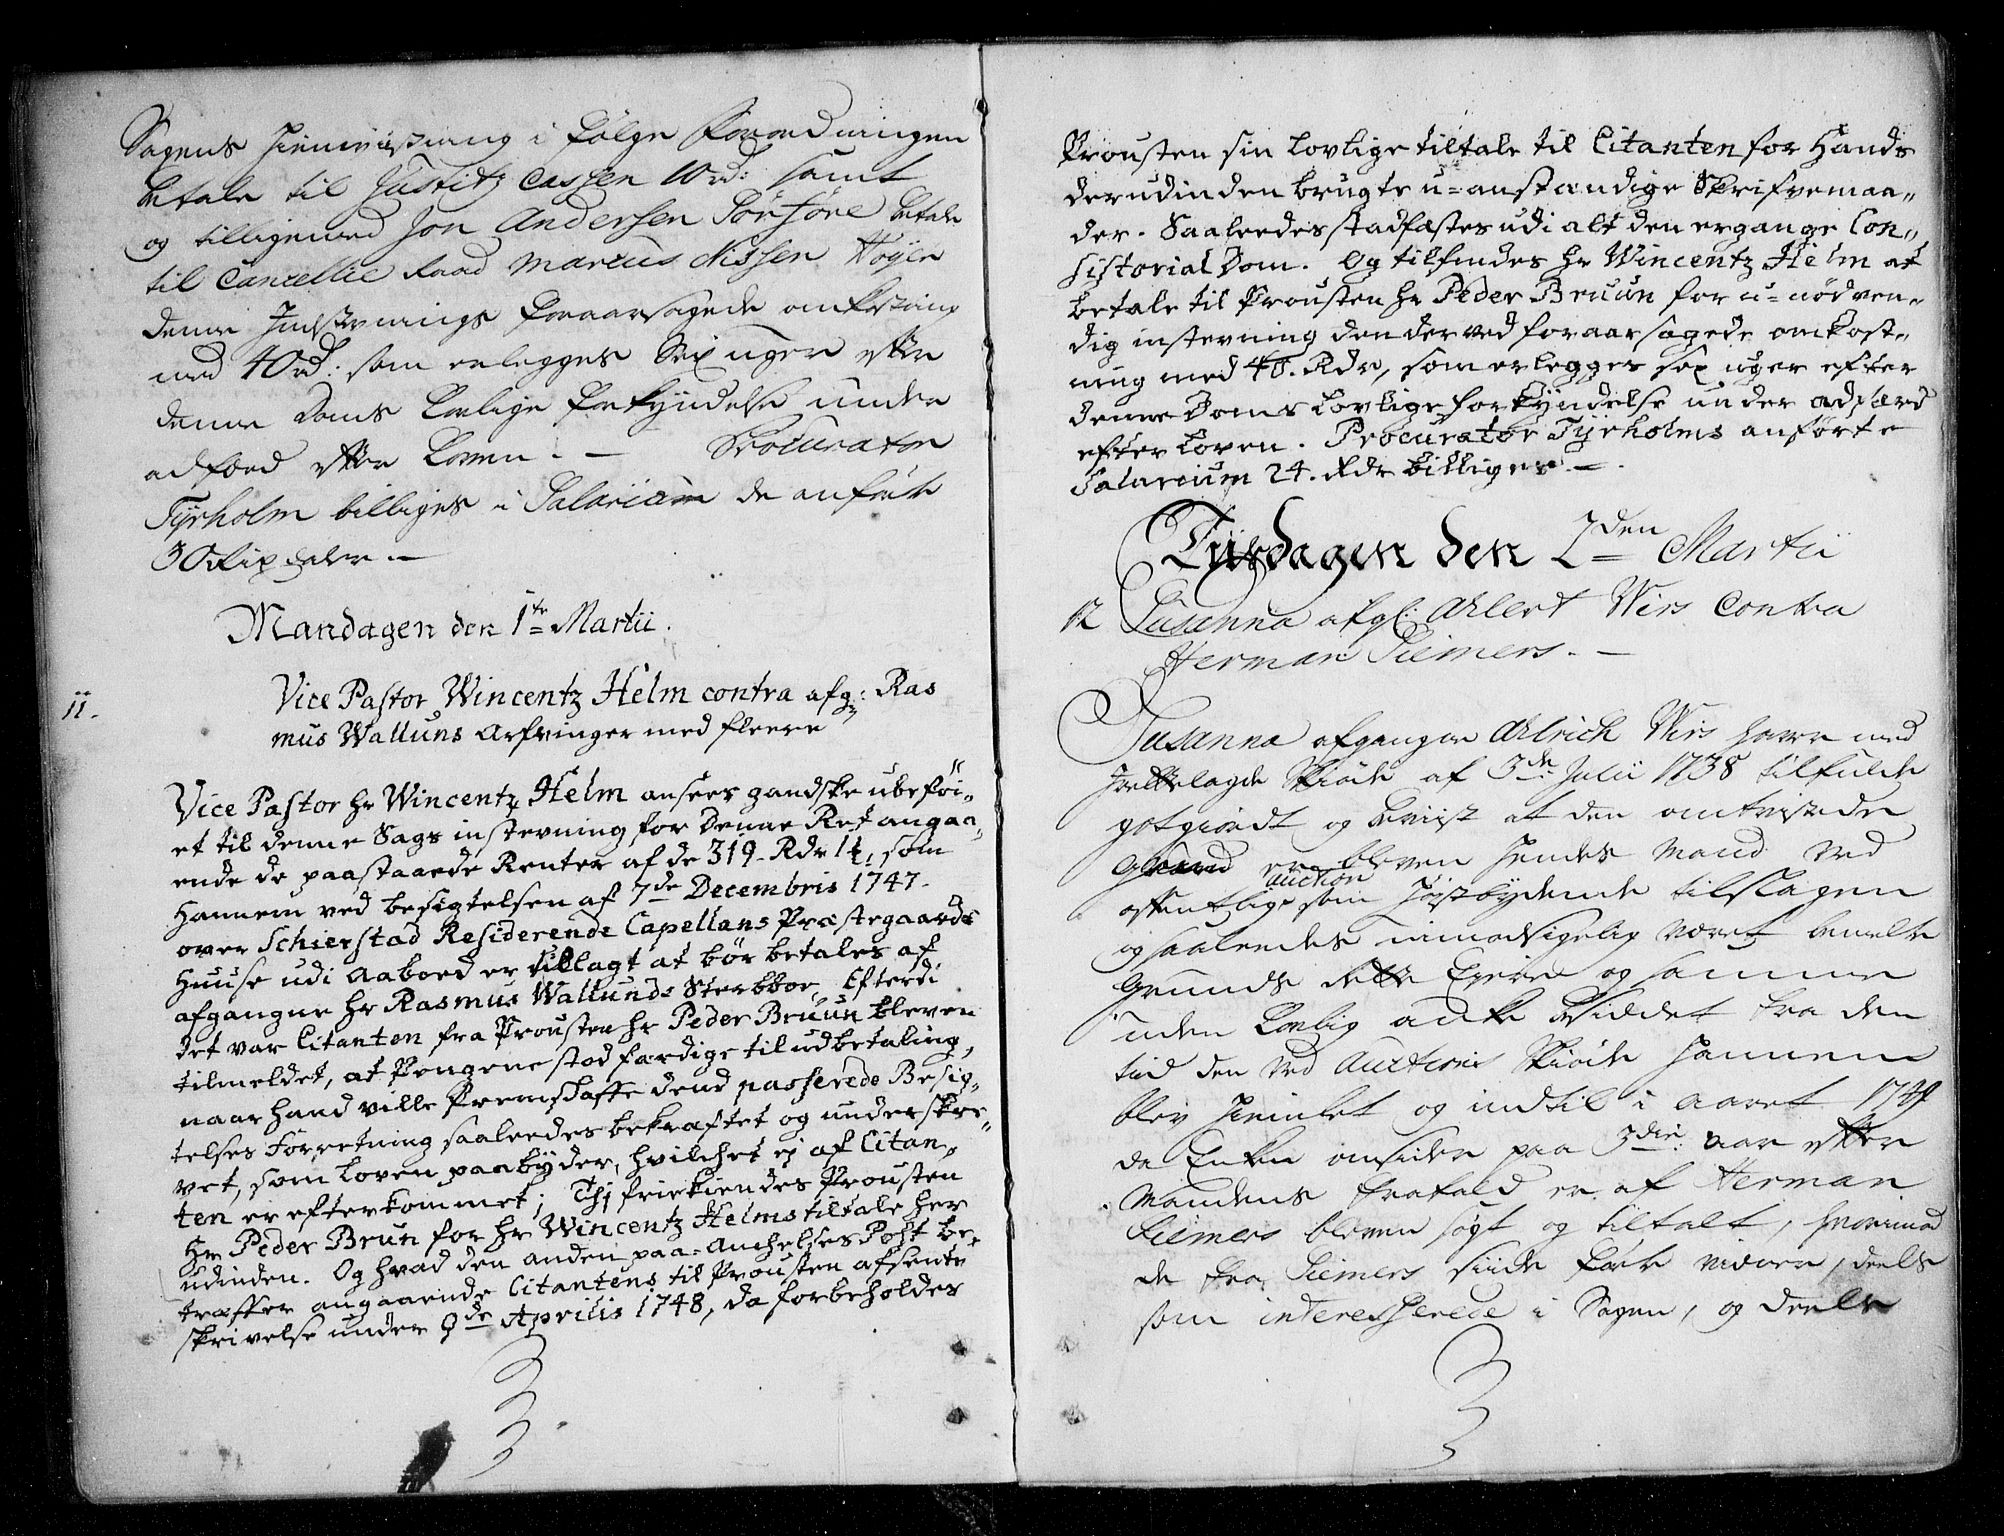 Sagens hiemviisning i følge Forordningen
betale til Justitz Cassen 10 rd: samt
og tilligemed Jon Andersen Sørføre betale
til Cancellie Raad Marcus Nissen Høyer
denne Indstevnings foraarsagede omkostning
med 40 rd: som erlegges Sex uger efter
denne Doms Lovlige forkyndelse under
adfærd efter Loven. — Procurator
Tyrholm billiges i Salarium de anførte
30 Rixdaler. —
Mandagen den 1te Martii.
11. Vice Pastor Wincentz Helm contra afg: Ras
mus Walluns Arfvinger med fleere
Vice Pastor Hr Wincentz Helm ansees gandske ubeføi„
et til denne Sags instevning for Denne Ret angaa„
ende de paastaaede Renter af de 319. Rdr 1 ₰, som
Hannem ved besigtelsen af 7de Decembris 1747.
over Schierstad Residerende Capellans Præstegaards
Huuse udi Aaboed er tillagt at bør betales af
afgangne Hr Rasmus Wallunds Sterbboe, Efterdi
det var Citanten fra Prousten Hr Peder Bruun bleven
tilmeldet, at Pengene stod færdige til udbetaling,
naar hand ville fremskaffe dend passerede Besig„
telses Forretning saaleedes bekræftet og underskre„
vet, som Loven paabyder, hvilchet ej af Citan„
ten er efterkommet; Thi friekiendes Prousten
Hr Peder Brun for Hr Wincentz Helms tiltale her
udinden. Og hvad den anden paa-Anchelses Post be„
træffer angaaende Citantens til Prousten afsente
skrivelse under 9de Aprilis 1748, da forbeholdes
Prousten sin Lovlige tiltale til Citanten for Hands
derudinden brugte u-anstændige Skrifvemaa„
der. Saaleedes stadfæstes udi alt den ergange Con„
sistorial Dom. Og tilfindes Hr Wincentz Helm at
betale til Prousten Hr Peder Bruun for u-nødven„
dig instevning den derved foraarsagede omkost„
ning med 40. Rdr, som erlegges sex uger efter
denne Doms Lovlige forkyndelse under adfærd
efter Loven. Procurator Tyrholms anførte
Salarium 24. Rdr billiges. —
Tiirsdagen den 2den Martii
12 Susanna afgl: Ahlert Wirs Contra
Herman Siemers. —
Susanna afgangen Ahlrich Wirs haver med
fremlagde Skiøde af 3de Julii 1738 tilfulde
godtgiordt og beviist at den omtvistede
Gaard er bleven hendes Mand ved
offentlige auction som høistbydende tilslagen
og saaleedes uimodsigelig været bemelte
Grunds rette Eyere og samme
uden Lovlig anke besiddet fra den
tiid den ved Auctions Skiøde hannem
blev hiemlet og indtil i aaret 1749
da Enken omsider paa 3die aar efter
Mandens frafald er af Herman
Siemers bleven søgt og tiltalt, hvorimod
de fra Siemers siide førte vidner, deels
som interesserede i Sagen, og deels